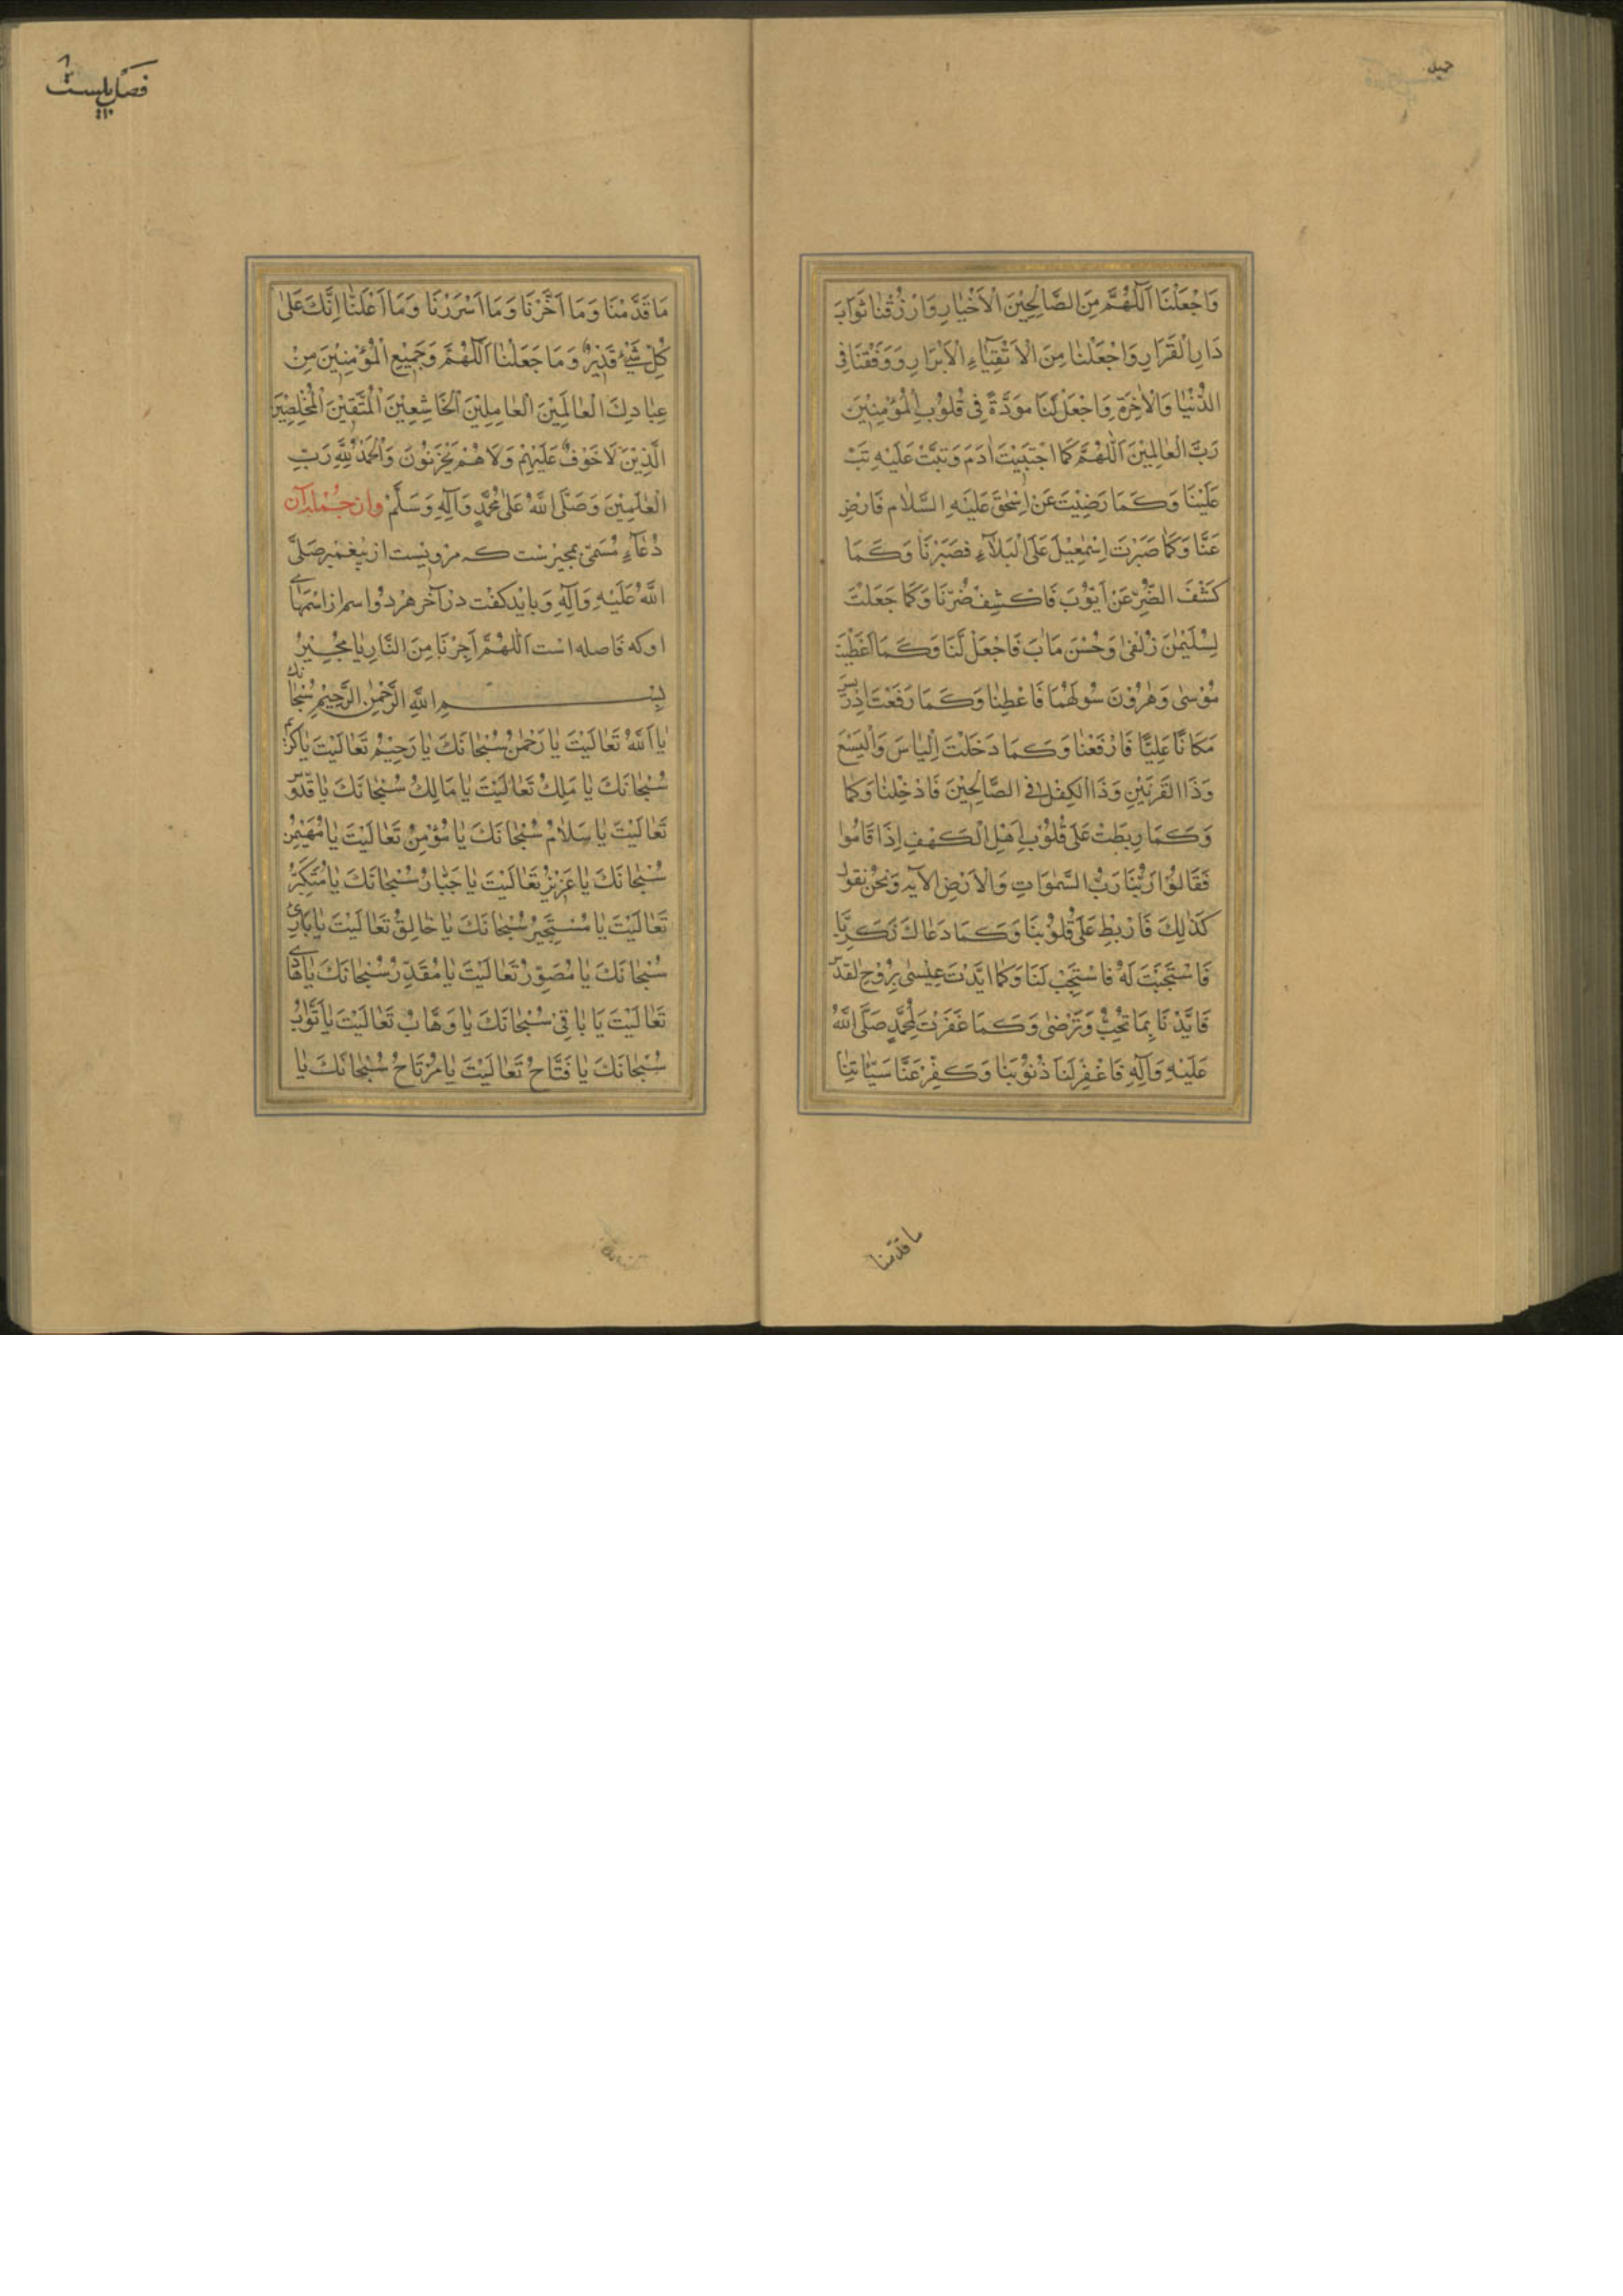 وَاجْعَلْنَا اَللّٰهُمَّ مِنَ الصَّالِحِيْنَ الْاَخْيٰارِ وَارْزُقْنٰا ثَوٰابَ
دٰارِ الْقَرَارِ وَاجْعَلْنٰا مِنَ الْاَتْقِيٰاءِ الْاَبْرَارِ وَوَفِّقْنَا فِى
الدُّنْيٰا وَالْاٰخِرَةِ وَاجْعَلْ لَنَا مَوَدَّةً فِى قُلُوْبِ الْمُؤْمِنِيْنَ
رَبَّ الْعٰالَمِيْنَ اَللّٰهُمَّ كَمَا اجْتَبَيْتَ اٰدَمَ وَتُبْتَ عَلَيْهِ تُبْ
عَلَيْنَا وَكَمَا رَضِيْتَ عَنْ اِسْحٰقَ عَلَيْهِ السَّلٰام فَارْضِ
عَنَّا وَكَمٰا صَبَّرْتَ اِسْمٰعِيْلَ عَلَى الْبَلَآءِ فَصَبِّرْنَا وَكَمَا
كَشَفَ الضُّرِّ عَنْ اَيُّوْبَ فَاكْشِفْ ضُرَّنَا وَكَمٰا جَعَلْتَ
لِسُلَيْمٰنَ زُلْفىٰ وَحُسْنَ مَاٰبَ فَاجْعَلْ لَنَا وَكَمَا اَعْطَيْتَ
مُوْسىٰ وَهٰرُوْنَ سُولَهُمَا فَاعْطِنٰا وَكَمَا رَفَعْتَ اِدْرِيسَ
مَكَانًا عَلِيًّا فَارْفَعْنٰا وَكَمَا دَخَلْتَ اِلْيٰاسَ وَالْيَسَعَ
وَذَا القَرنَيْنِ وَذَا الْكِفْلِ فى الصَّالِحِيْنَ فَادْخِلْنٰا وَكَمٰا
وَكَمَا رَبَطْتَ عَلىٰ قُلُوْبِ اَهْلِ الْكَهْفِ اِذَا قَامُوا
فَقَالُوْا رَبُّنَا رَبُّ السَّمٰوَاتِ وَالْاَرْضِ الآيه وَنَحْنُ نقولُ
كَذٰلِكَ فَارْبِطْ عَلىٰ قُلُوْبِنَا وَكَمَا دَعٰاكَ زَكَرِيَّا
فَاسْتَجَبْتَ لَهُ فَاسْتَجِبْ لَنَا وَكَمٰا اَيَّدْتَ عِيْسىٰ بِرُوْحِ القدسِ
فَاَيِّدْنَا بِمَا تُحِبُّ وَتَرْضىٰ وَكَمَا غَفَرْتَ لِمُحَمَّدٍ صَلَّى اللّٰهُ
عَلَيْهِ وَآلِهِ فَاغْفِرْلَنَا ذُنُوْبَنٰا وَكَفِّرْ عَنَّا سَيِّئٰاتِنٰا
ما قدّمنا
فصَل بيست
مَا قَدَّمْنَا وَمَا اَخَّرْنَا وَمَا اَسْرَرْنَا وَمَا اَعْلَنَّا اِنَّكَ عَلىٰ
كُلِّ شَىْءٍ قَدِيْرٌ وَمَا جَعَلْنٰا اَللّٰهُمَّ وَجَمِيْعِ الْمُؤْمِنِيْنَ مِنْ
عِبٰادِكَ الْعٰالَمِيْنَ الْعٰامِلِيْنَ الْخَاشِعِيْنَ الْمُتَّقِيْنَ الْمُخْلِصِيْنَ
الَّذِيْنَ لَاخَوْفٌ عَلَيْهِمْ وَلَاهُمْ يَحْزَنُوْنَ وَالْحَمْدُ لِلّٰهِ رَبِّ
الْعٰلَمِيْنَ وَصَلَّى اللّٰهُ عَلىٰ مُحَمَّدٍ وَآلِهِ وَسَلَّمْ وان جُمله آن
دُعٰآءِ مُسَمّىٰ بمجيرست كه مرويست از پيغمبر صَلَّى
اللّٰهُ عَلَيْهِ وَآلِهِ وَبايد كفت در آخر هر دو اسم از اسمهاى
او كه فاصله است اَللّٰهُمَّ اَجِرْنَا مِنَ النَّارِ يٰا مُجِيْرُ
بِسْمِ اللّٰهِ الرَّحْمٰنِ الرَّحِيْمِ سُبْحٰانَكَ
يٰا اَللّٰهُ تَعٰالَيْتَ يٰا رَحْمٰنُ سُبْحٰانَكَ يٰا رَحِيْمُ تَعٰالَيْتَ يٰا كَرِيْمُ
سُبْحٰانَكَ يٰا مَلِكُ تَعٰالَيْتَ يٰا مَالِكُ سُبْحٰانَكَ يٰا قدّوسُ
تَعٰالَيْتَ يٰا سَلٰامُ سُبْحٰانَكَ يٰا مُؤْمِنُ تَعٰالَيْتَ يٰا مُهَيْمِنُ
سُبْحٰانَكَ يٰا عَزِيْزُ تَعٰالَيْتَ يٰا جَبّٰارُ سُبْحٰانَكَ يٰا مُتَكَبِّرُ
تَعٰالَيْتَ يٰا مُسْتَجِيْرُ سُبْحٰانَكَ يٰا خٰالِقُ تَعٰالَيْتَ يٰا بَارِئُ
سُبْحٰانَكَ يٰا مُصَوِّرُ تَعٰالَيْتَ يٰا مُقَدِّرُ سُبْحٰانَكَ يٰا هَادِى
تَعٰالَيْتَ يٰا بٰاقِىْ سُبْحٰانَكَ يٰا وَهَّابُ تَعٰالَيْتَ يٰا تَوّٰابُ
سُبْحٰانَكَ يٰا فَتَّاحُ تَعٰالَيْتَ يٰا مُرْتَاحُ سُبْحٰانَكَ يٰا